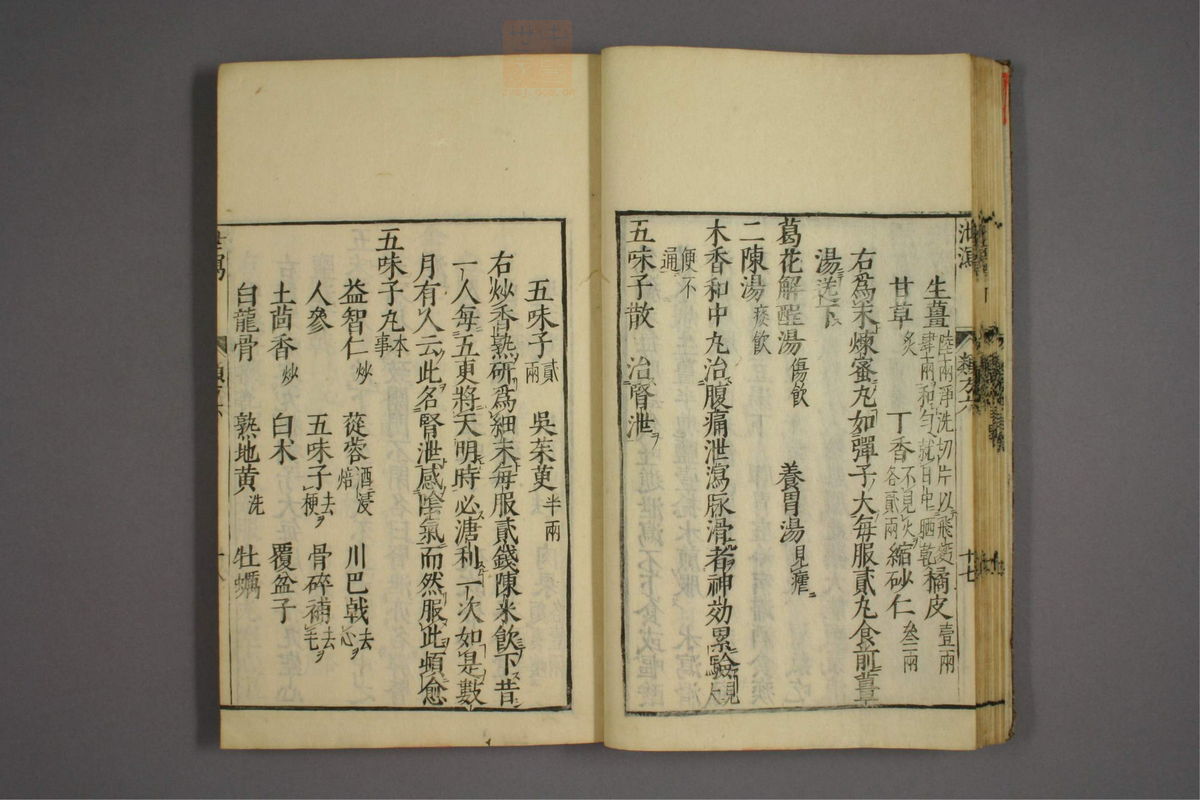 生薑陸兩淨洗切片以飛麪肆兩和勻就日中晒乾橘皮壹兩
甘草炙 丁香不見火各貳兩縮砂仁叁兩
右為末煉蜜丸如彈子大每服貳丸食前薑
湯送下
葛花解醒湯傷飲 養胃湯見瘧
二陳湯痰飲
木香和中丸治腹痛泄瀉脉滑者神効累驗見大
便不通
五味子散 治腎泄
五味子貳兩 吳茱萸半兩
右炒香熟研為細末每服貳錢陳米飲下昔
一人每五更將天明時必溏利一次如是數
月有人云此名腎泄感陰氣而然服此頓愈
五味子丸本事
益智仁炒 蓯蓉酒浸焙 川巴戟去心
人參 五味子去梗 骨碎補去毛
土茴香炒 白术 覆盆子
白龍骨 熟地黄洗 牡蠣
泄瀉
十七